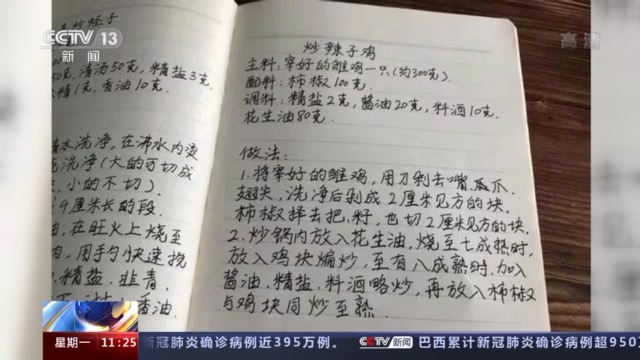 CCTV 13
新闻
高清
克,清汤50克,精盐3克
精1克,香油10克.
水洗净,在沸水内烫
洗净(大的可切成
小的不切).
4厘米长的段.
油,在旺火上烧至
肉,用手勺快速搅
精盐.韭青.
香油.
炒辣子鸡
主料:宰好的雏鸡一只(约300克).
配料:柿椒100克.
调料:精盐2克,酱油20克,料酒10克,
花生油80克.
做法:
1.将宰好的雏鸡,用刀剁去嘴、爪、
翅尖,洗净后剁成2厘米见方的块.
柿椒择去把、籽,也切2厘米见方的块.
2.炒锅内放入花生油,烧至七成熟时,
放入鸡块煸炒,至有八成熟时,加入
酱油、精盐、料酒略炒,再放入柿椒
与鸡块同炒至熟.
星期一 11:25 新冠肺炎确诊病例近395万例。 CCTV 13 新闻 巴西累计新冠肺炎确诊病例超950